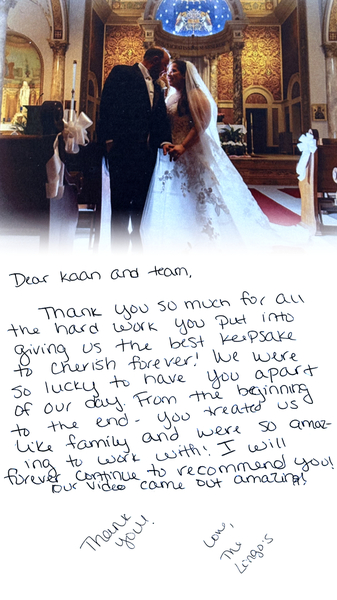 Dear Kaan and team,
Thank you so much for all
the hard work you put into
giving us the best keepsake
to cherish forever! We were
so lucky to have you apart
of our day. From the beginning
to the end - you treated us
like family and were so amaz-
ing to work with! I will
forever continue to recommend you!
Our video came out amazing!
Thank
you!
Love,
The
Lingo's